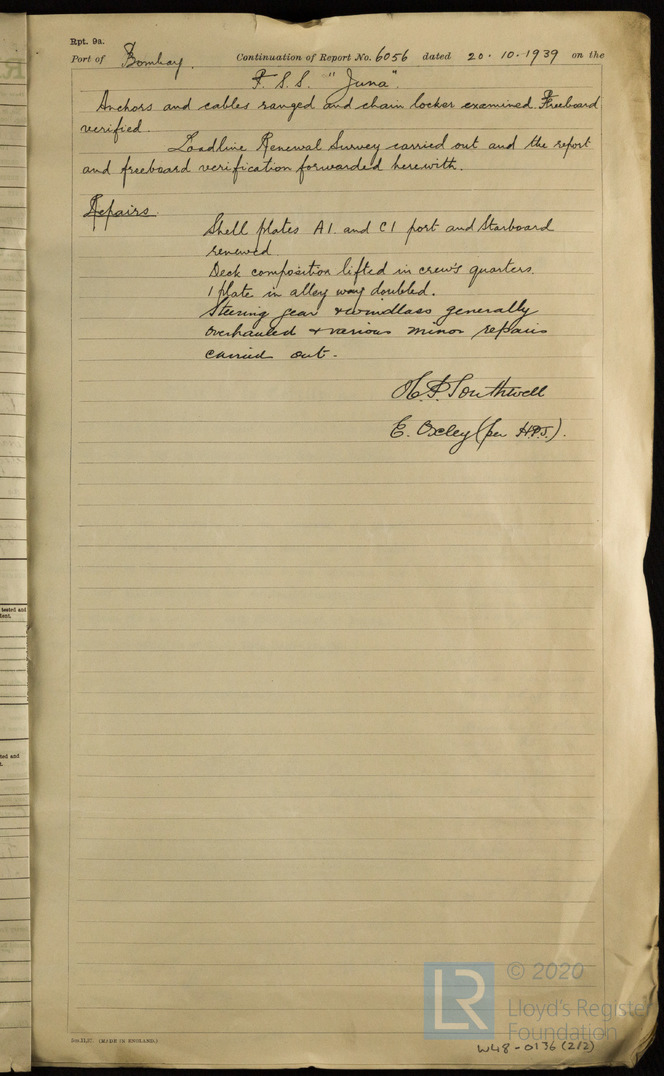 Rpt. 9a.
Port of Bombay. Continuation of Report No. 6056 dated 20.10.1939 on the
"Juna".
Anchors and cables ranged and chain locker examined. Freeboard
verified.
Loadline Renewal Survey carried out and the report
and freeboard verification forwarded herewith.
Repairs.
Shell plates A1. and C1 port and Starboard
renewed
Deck composition lifted in crew's quarters.
1 plate in alley way doubled.
Steering gear + windlass generally
overhauled + various minor repairs
carried out.
Southwell
E. Oxley (per H.P.S.).
(MADE IN ENGLAND.)
LR
© 2020
Lloyd's Register
Foundation
W48-0136 (2/2)
tested and
ted and